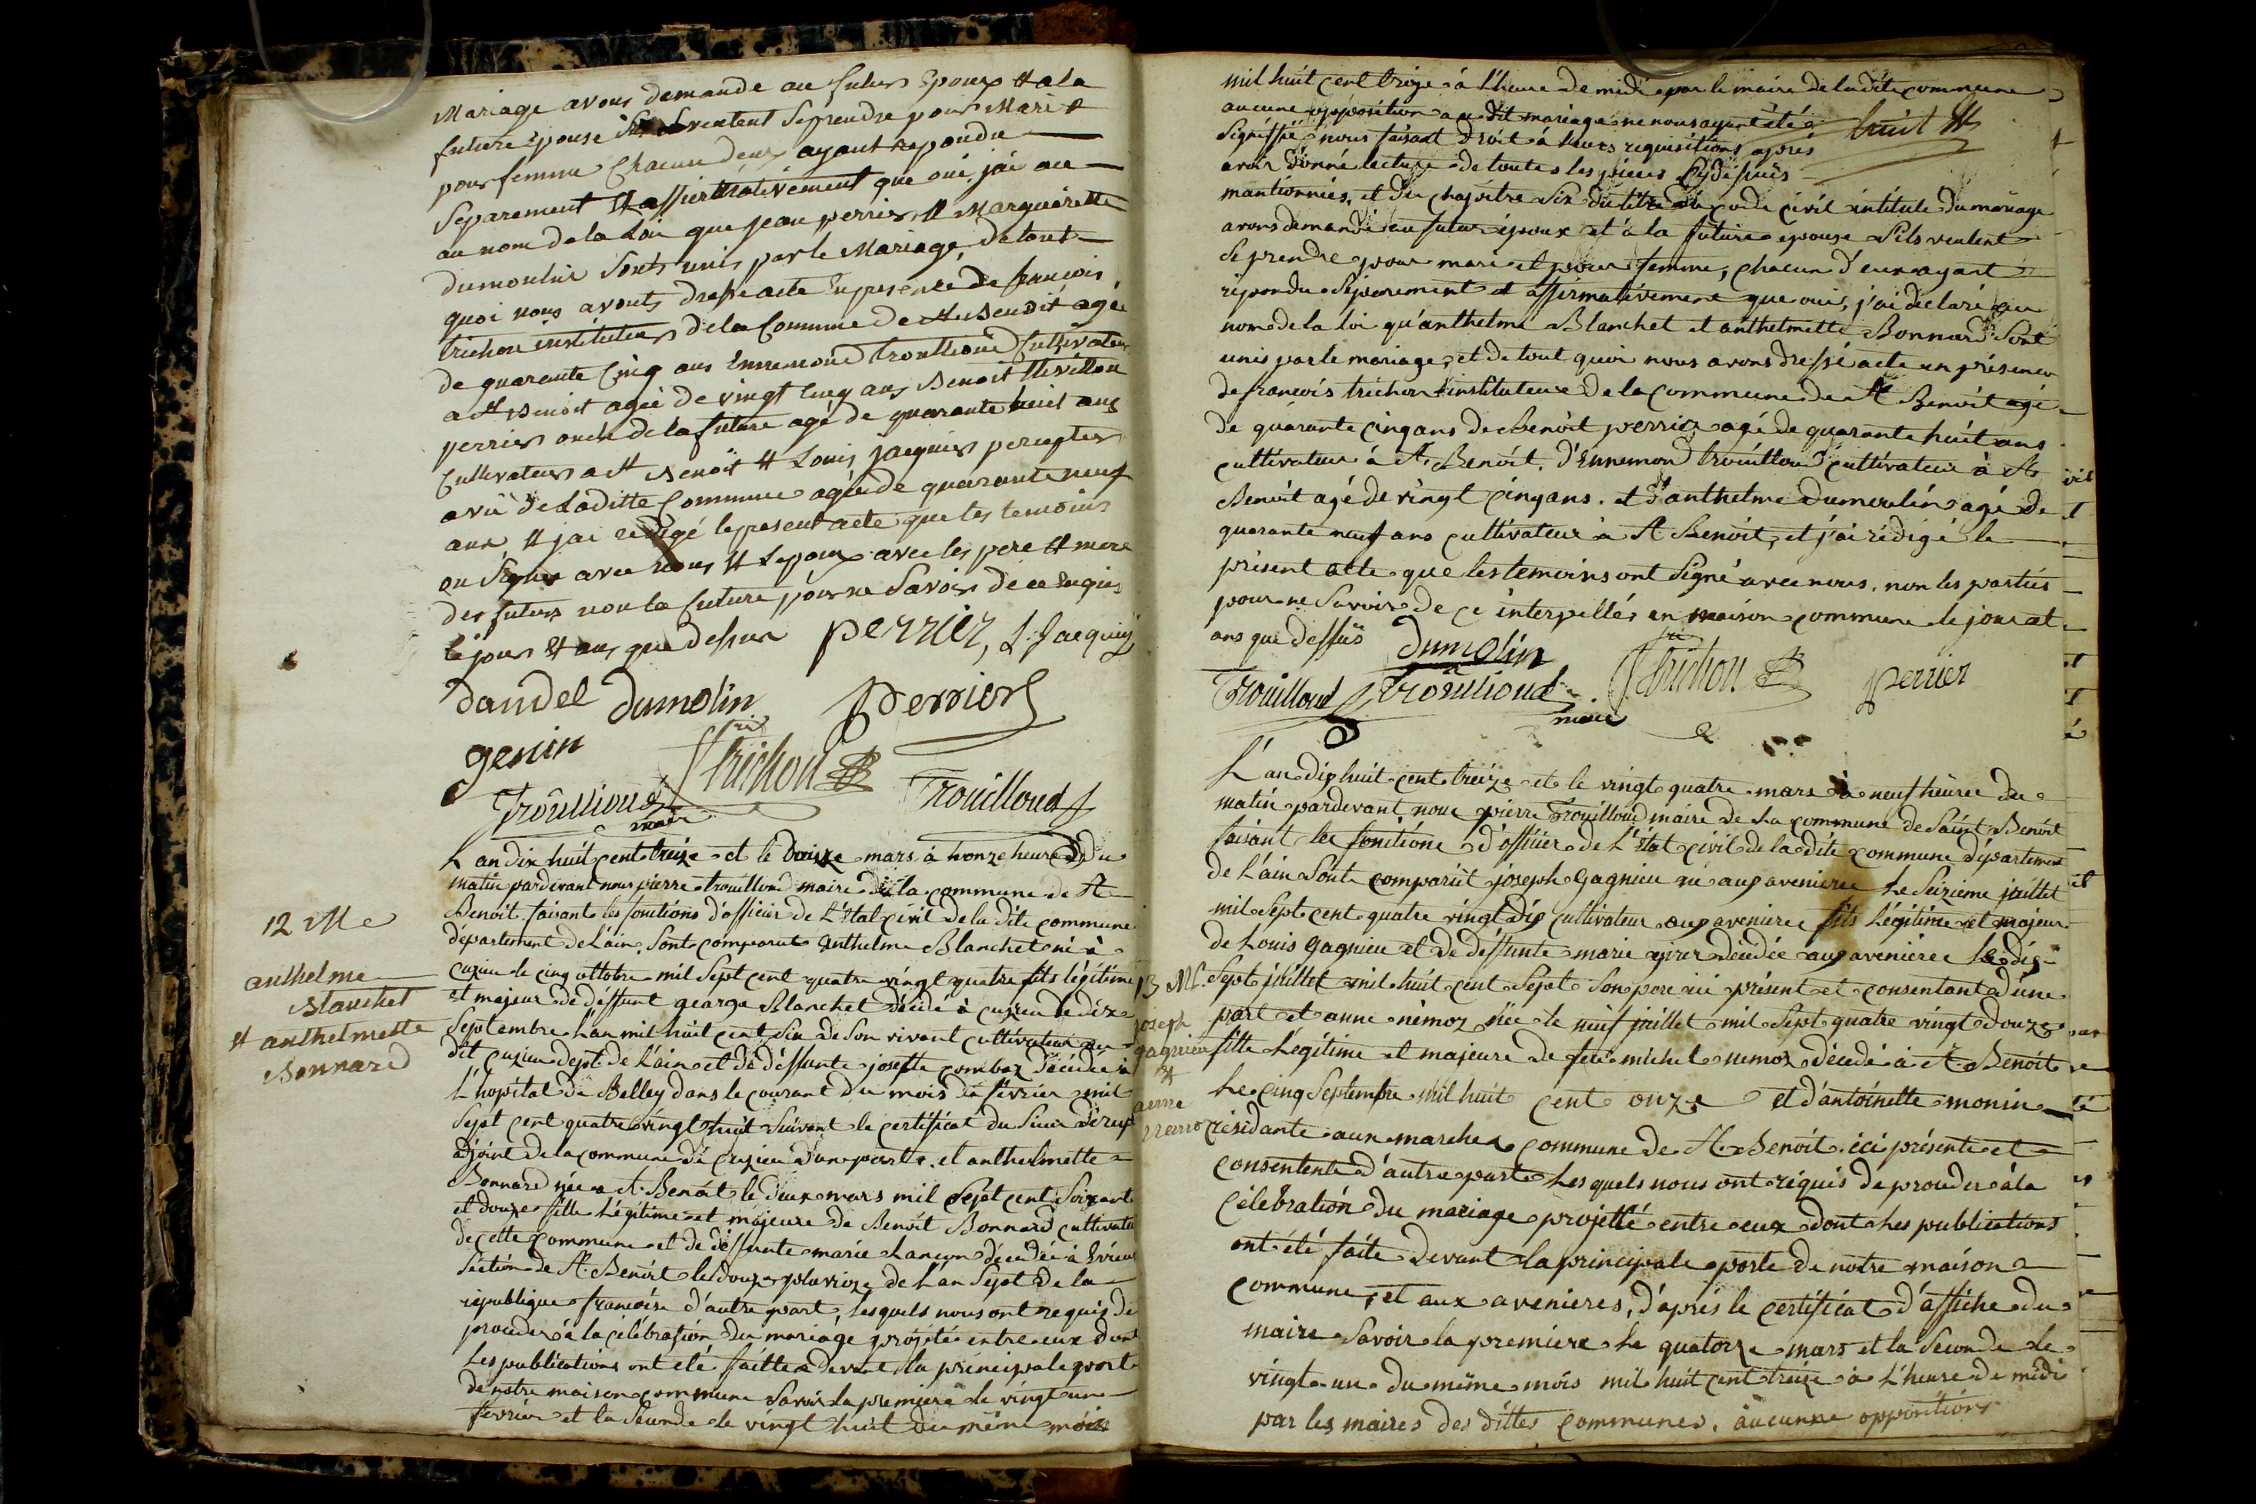 Mariage avons demande au futur Epoux et a la
future Epouse veutent Se prendre pour Mari et
pour femme Chacun deux ayant repondu
Separement et affirmativement que oui jai au
au nom de la Loi que jean perrier et Margueritte
dumoulin Sonts unis par le Mariage, de tout
quoi nous avonts dresse acte En presence de francois
trichon instituteur de la Commune de st Benoit agé
de quarante Cinq ans Ennemond trouilloud Cultivateur
a st Benoit agée de vingt Cinq ans Benoit
perrier oncle de la future agé de quarante huit ans
Cultivateur a st Benoit et Louis jacquier percepteur
a de Laditte Commune agée de quarante neuf
ans et jai redigé le present acte que les temoins
on Signer avec nous et Lepoux avec les pere et mere
des futurs non la future pour ne Savoir de ce Enquis
le jour et ans que dessus perrier, L. Jacquier
dandel dumolin perrier
genin trichon Trouilloud
Trouilloud
maire
L an dix huit cent treize et le Douze mars à honze heures du
matin pardevant nous pierre trouilloud maire de la commune de st
Benoit faisant les fonctions d'officier de L'Etat civil de la dite commune
département de L'ain Sont comparut anthelme Blanchet né à
cuzieu le cinq octobre mil Sept cent quatre vingt quatre fils légitime
et majeur de déffunt george Blanchet décédé à cuzieu le dix
Septembre L'an mil huit cent Six de Son vivant cultivateur au
dit cuzieu dept de L'ain et de déffunte josette combaz décédée à
L'hopital de Belley dans le courant du mois de fevrier mil
Sept cent quatre vingt huit Suivant le certificat du Sieur
adjoint de la commune de cuzieu d'une part et anthelmette
Bonnard née a st. Benoit le deux mars mil Sept cent Soixante
et douze fille Légitime et majeure de Benoit Bonnard cultivateur
de cette commune et de déffunte marie Lançon décédée à Evieu
Séction de st. Benoit le douze pluvioze de L'an Sept de la
republique francoise d'autre part, lesquels nous ont requis de
proceder à la célébration du mariage projété entre eux dont
Les publications ont été faittes devant la principale porte
de notre maison commune Savoir La premiere le vingt un
fevrier et la Seconde le vingt huit du même mois
12 Me
anthelme
Blanchet
et anthelmette
Bonnard
mil huit cent treize à L'heure de midi par le maire de la dite commune
aucune opposition au dit mariage ne nous ayant été
Signiffié nous faisant droit à leurs requisitions après
avoir donné lecture de toutes les pièces Cy dessus
mantionnées, et du chapitre Six du titre du code civil intitulé du mariage
avons demandé au futur époux et à la future epouse S'ils veulent
Se prendre pour mari et pour femme, chacun d'eux ayant
répondu Séparement et affirmativement que oui, j'ai déclaré au
nom de la loi qu'anthelme Blanchet et anthelmette Bonnard Sont
unis par le mariage, et de tout quoi nous avons dressé acte en présence
de francois trichon instituteur de la commune de st Benoit agé
de quarante cinq ans de Benoit perrier agé de quarante huit ans
cultivateur à st. Benoit, d'Ennemond trouilloud cultivateur à st
Benoit agé de vingt cinq ans. et d'anthelme dumoulin agé de
quarante neuf ans cultivateur à st Benoit, et j'ai rédigé le
présent acte que les temoins ont Signé avec nous, non les parties
pour ne Savoir de ce interpellés en maison commune le jour et
ans que dessus dumolin
Trouilloud Trouilloud trichon perrier
maire
L'an dix huit cent treize et le vingt quatre mars à neuf heures du
matin pardevant nous pierre Trouilloud maire de La commune de Saint Benoit
faisant les fonctions d'officier de L'état civil de la dite commune département
de L'ain Sont comparüt joseph Gagnieu né aux avenieres Le Seizieme juillet
mil Sept cent quatre vingt dix cultivateur aux avenieres fils Légitime et majeur
de Louis Gagnieu et de deffunte marie décédée aux avenieres le dix
Sept juillet mil huit cent Sept Son pere ici présent et consentant d'une
part et anne némoz née le neuf juillet mil Sept quatre vingt douze
fille Légitime et majeure de feu michel nemoz décédé à st. Benoit
Le cinq Septembre mil huit cent onze et d'antoinette monin
résidante aux marches commune de st. Benoit ici présente et
consentente d'autre part Lesquels nous ont réquis de proceder à la
Célébration du mariage projetté entre eux dont Les publications
ont été faite devant la principale porte de notre maison
commune, et aux avenieres, d'après le certificat d'affiche du
maire Savoir la premiere Le quatorze mars et la Seconde le
vingt un du même mois mil huit cent treize à L'heure de midi
par les maires des dittes communes, aucunne oppositions
13 M.
joseph
gagnieu
et
anne